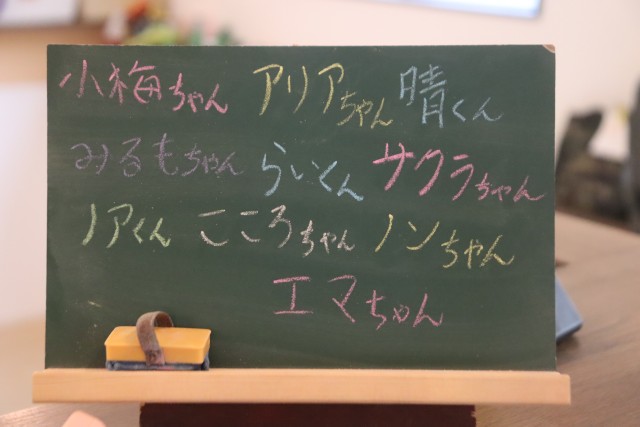 小梅ちゃん アリアちゃん 晴くん
みるもちゃん らいくん サクラちゃん
ノアくん こころちゃん ノンちゃん
エマちゃん